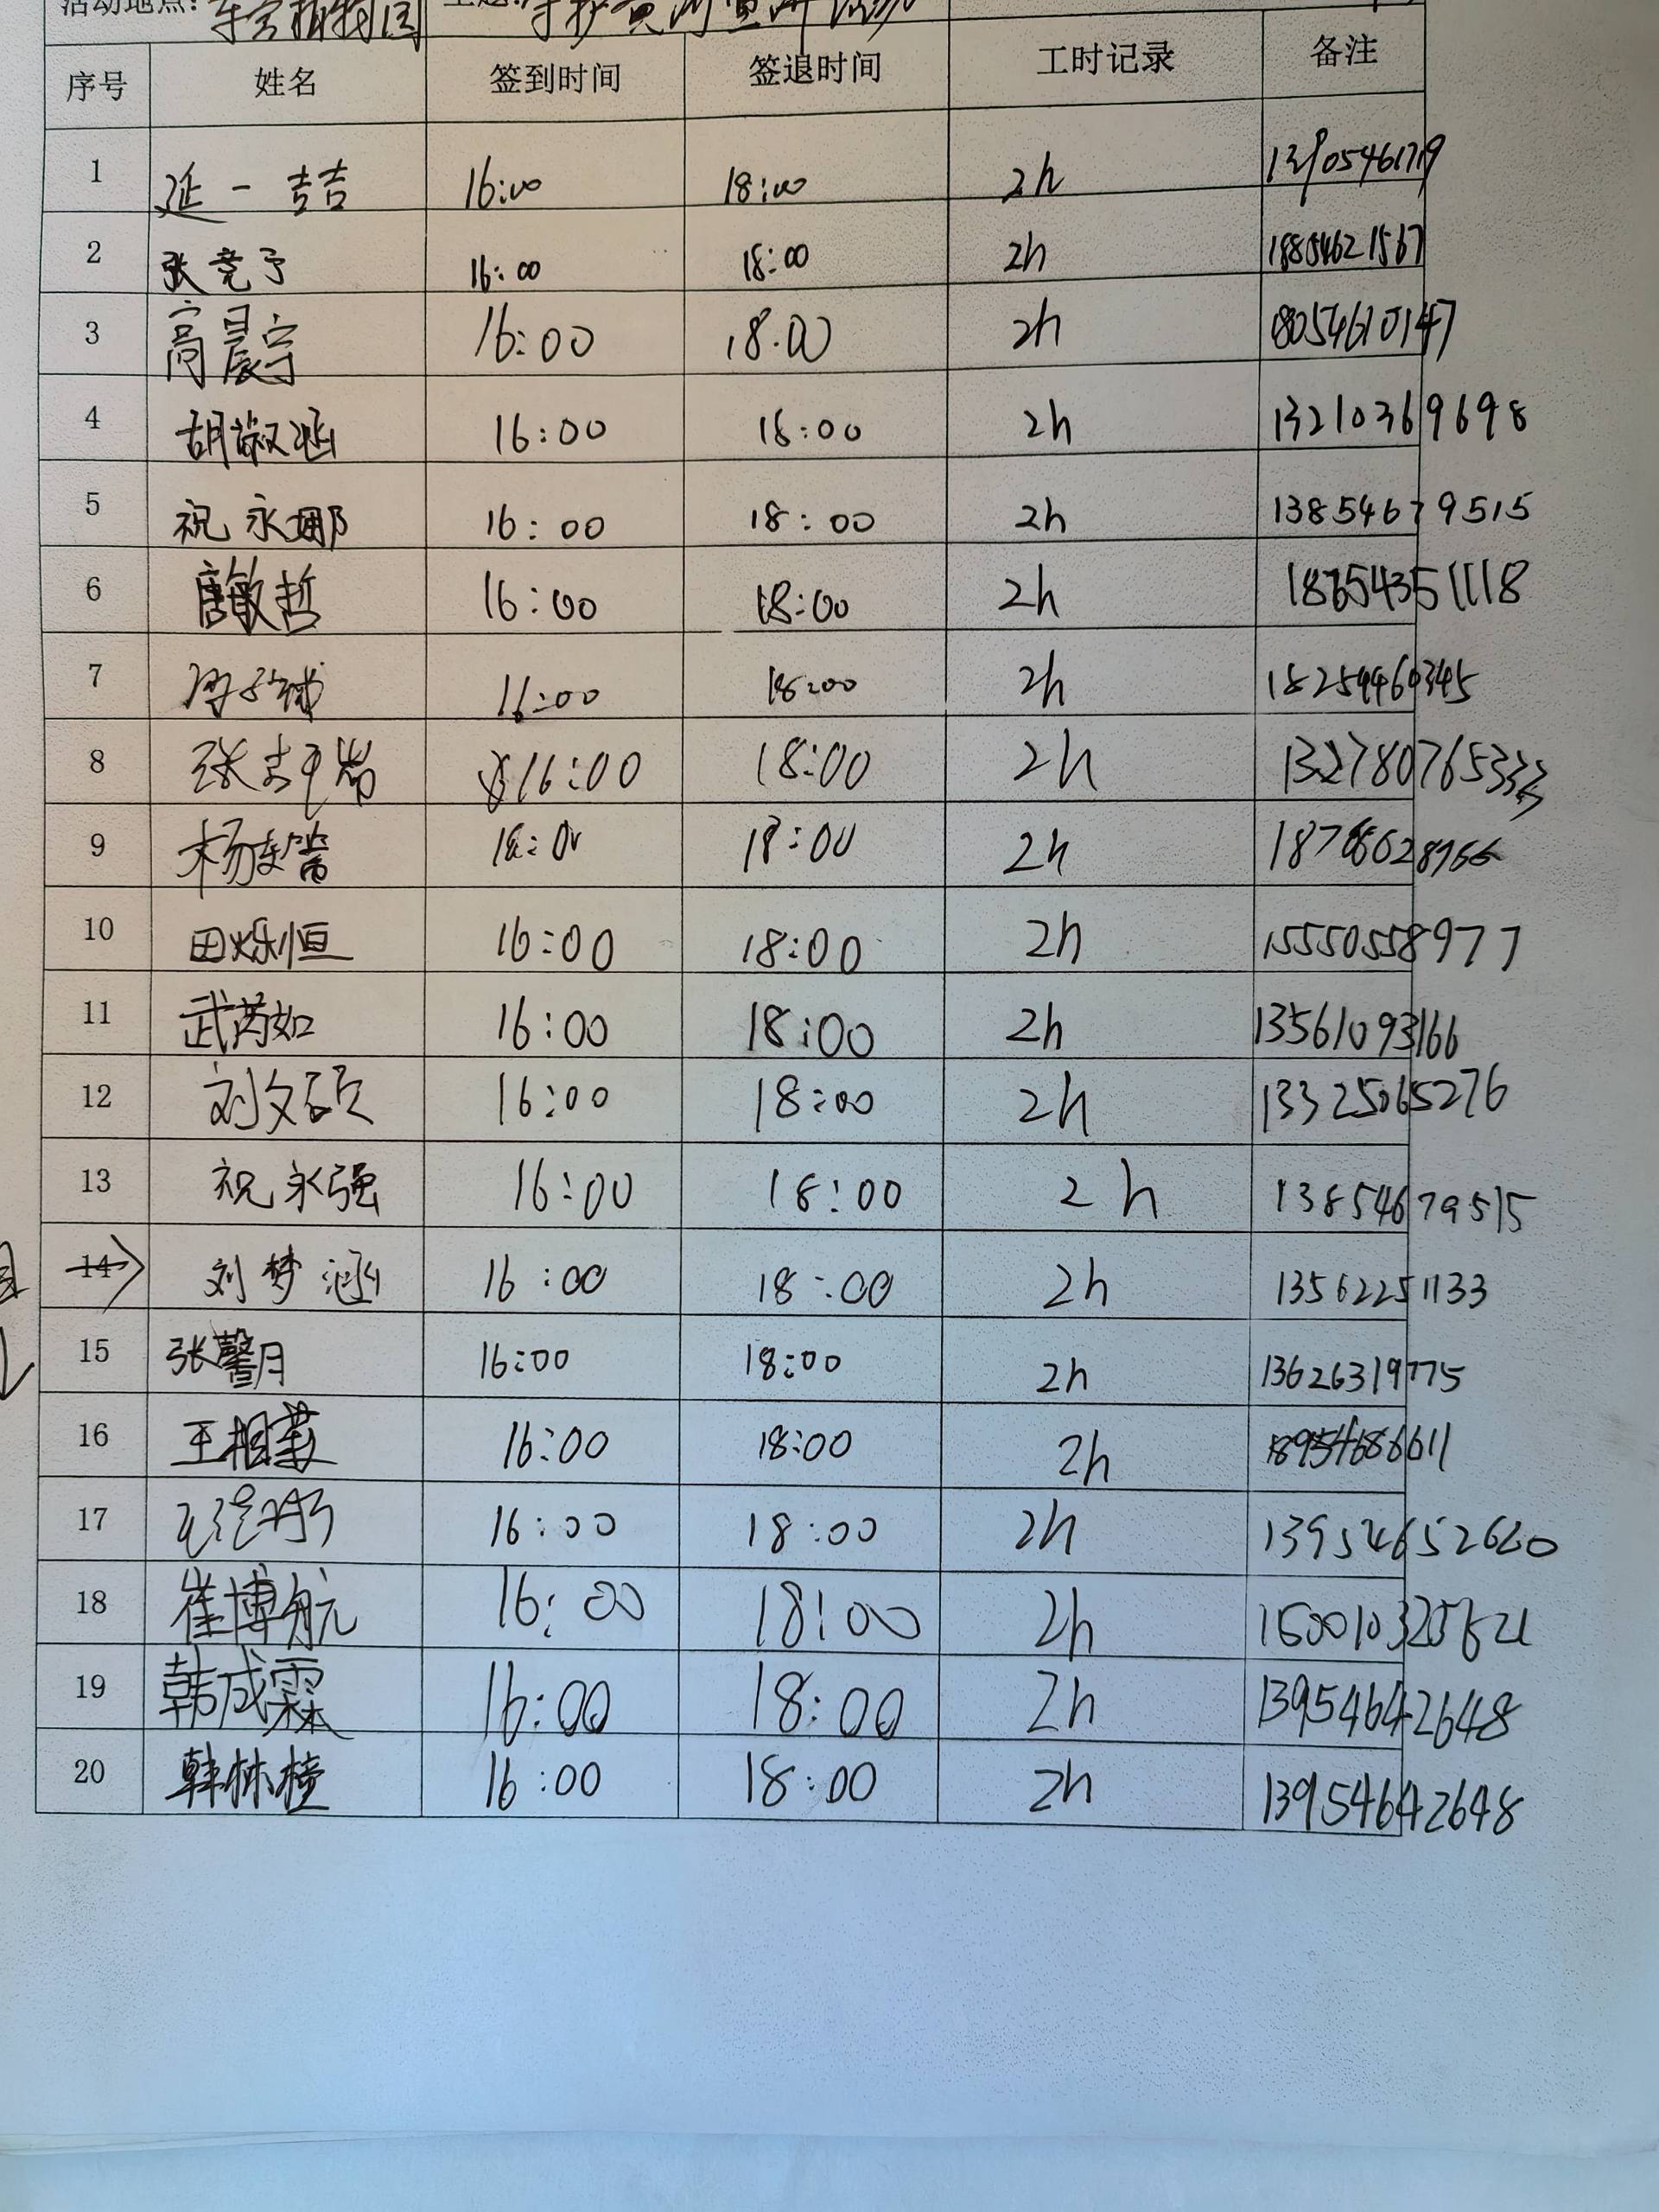 活动地点: 主题:守护黄河
序号 姓名 签到时间 签退时间 工时记录 备注
1 延一喆 16:00 18:00 2h
2 张竞予 16:00 18:00 2h 18854621567
3 高晨宁 16:00 18:00 2h
4 胡淑涵 16:00 18:00 2h 13210369698
5 祝永娜 16:00 18:00 2h 13854679515
6 唐敬哲 16:00 18:00 2h
7 16:00 18:00 2h 18254460345
8 16:00 18:00 2h
9 18:00 2h
10 田烁恒 16:00 18:00 2h 15550558977
11 武芮如 16:00 18:00 2h 13561093166
12 刘文硕 16:00 18:00 2h 13325065276
13 祝永强 16:00 18:00 2h 13854679515
14 刘梦涵 16:00 18:00 2h 13562251133
15 张馨月 16:00 18:00 2h 13626319775
16 16:00 18:00 2h 18954686611
17 16:00 18:00 2h 13954652660
18 崔博航 16:00 18:00 2h
19 韩成霖 16:00 18:00 2h 13954642648
20 韩林橦 16:00 18:00 2h 13954642648